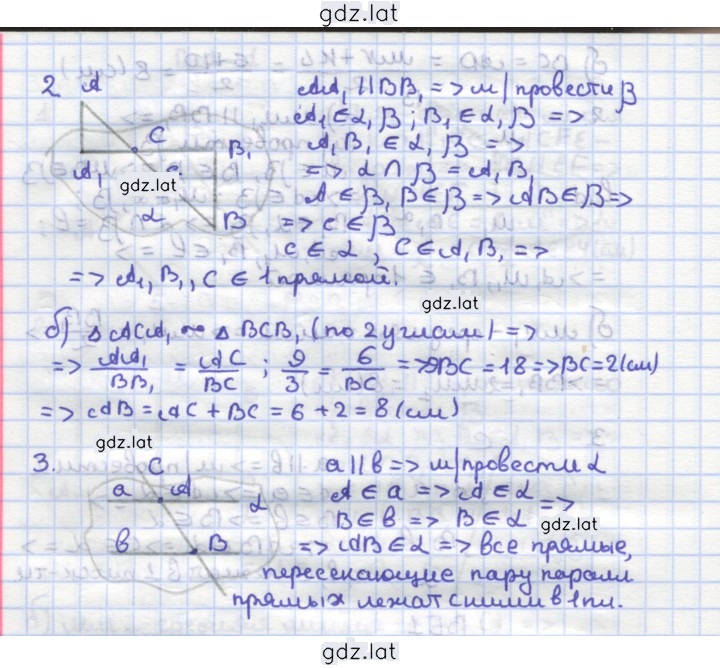 gdz.lat
2 A AA₁ || BB₁ => м/провести β
A₁ ∈ α, β ; B₁ ∈ α, β =>
C B₁ A₁ B₁ ∈ α, β =>
A₁ gdz.lat => α ∩ β = A₁ B₁
A ∈ β, B ∈ β => AB ∈ β =>
α B => C ∈ β
C ∈ α, C ∈ A₁ B₁ =>
=> A₁, B₁, C ∈ 1 прямой.
gdz.lat
б) Δ ACA₁ ~ Δ BCB₁ (по 2 углам) =>
=> AA₁/BB₁ = AC/BC ; 9/3 = 6/BC => 9BC = 18 => BC = 2 (см)
=> AB = AC + BC = 6 + 2 = 8 (см)
gdz.lat
3. C a || b => м/провести α
a A α A ∈ a => A ∈ α =>
B ∈ b => B ∈ α gdz.lat
b B => AB ∈ α => все прямые,
пересекающие пару паралл
прямых лежат с ними в 1 пл.
gdz.lat